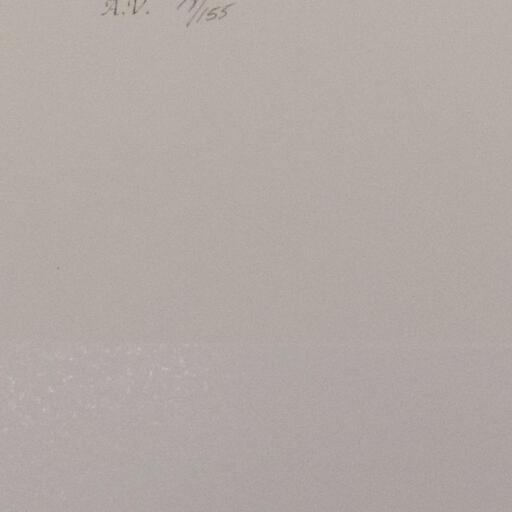 A.V. /155